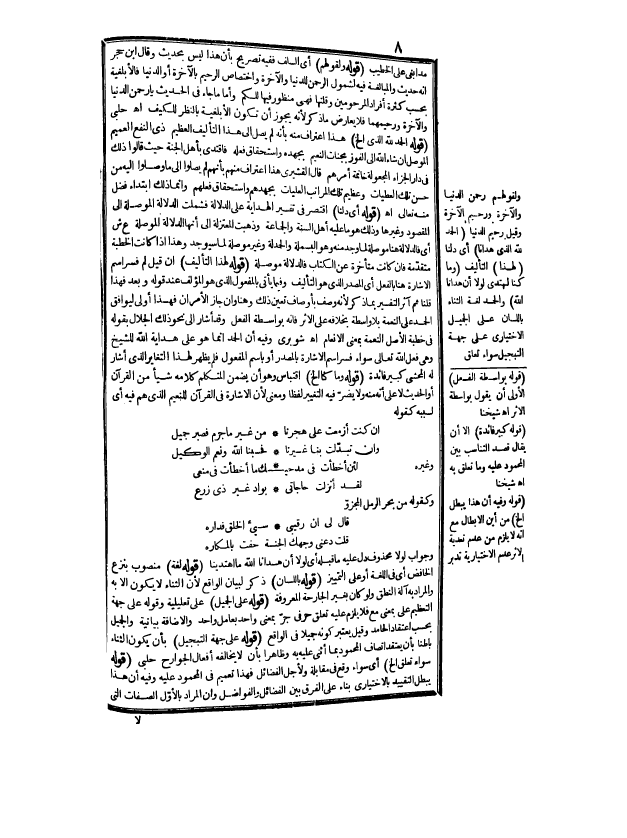 ٨
مدابغى على الخطيب (قوله ولقولهم) أى السلف ففيه تصريح بأن هذا ليس بحديث وقال ابن حجر
انه حديث والمبالغة فيه لشمول الرحمن للدنيا والآخرة واختصاص الرحيم بالآخرة أو الدنيا فالأبلغية
بحسب كثرة أفراد المرحومين وقلتها فهى منظور فيها للكم وأما ماجاء فى الحديث يارحمن الدنيا
والآخرة ورحيمهما فلا يعارض ماذكر لأنه يجوز أن تكون الأبلغية بالنظر للكيف اه حلبى
(قوله الحمد لله الذى الخ) هذا اعتراف منه بأنه لم يصل الى هذا التأليف العظيم ذى النفع العميم
الموصل ان شاء الله الى الفوز بجنات النعيم بجهده واستحقاق فعله فاقتدى بأهل الجنة حيث قالوا ذلك
فى دار الجزاء المجعولة خاتمة أمرهم قال القشيرى هذا اعتراف منهم بأنهم لم يصلوا الى ماوصلوا اليه من
حسن تلك العطيات وعظيم تلك المراتب العليات بجهدهم واستحقاق فعلهم وانما ذلك ابتداء فضل
منه تعالى اه (قوله أى دلنا) اقتصر فى تفسير الهداية على الدلالة فشملت الدلالة الموصلة الى
المقصود وغيرها وذلك هو ما عليه أهل السنة والجماعة وذهبت المعتزلة الى أنها الدلالة الموصلة ع ش
أى فالدلالة هنا موصلة لما وجد منه وهو البسملة والحمدلة وغير موصلة لما سيوجد وهذا اذا كانت الخطبة
متقدمة فان كانت متأخرة عن الكتاب فالدلالة موصلة (قوله لهذا التأليف) ان قيل لم فسر اسم
الاشارة هنا بالفعل أى المصدر الذى هو التأليف وفيما يأتى بالمفعول الذى هو المؤلف عند قوله وبعد فهذا
قلنا هم آثر التفسير بماذكر لأنه وصف بأوصاف تعين ذلك وهنا وان جاز الأمران فهذا أولى ليوافق
الحمد على النعمة بلا واسطة بخلافه على الاثر فانه بواسطة الفعل وقد أشار الى نحو ذلك الجلال بقوله
فى خطبة الأصل النعمة بمعنى الانعام اه شوبرى وفيه أن الحمد انما هو على هداية الله للشيخ
وهى فعل الله تعالى سواء فسر اسم الاشارة بالمصدر أو باسم المفعول فلم يظهر لهذا التغاير الذى أشار
له المحشى كبير فائدة (قوله وما كنا الخ) اقتباس وهو أن يضمن المتكلم كلامه شيأ من القرآن
أو الحديث لا على أنه منه ولا يضر فيه التغيير لفظا ومعنى لأن الاشارة فى القرآن للنعيم الذى هم فيه أى
لسببه كقوله
ان كنت أزمعت على هجرنا * من غير ماجرم فصبر جميل
وان تبدّلت بنا غيرنا * فحسبنا الله ونعم الوكيل
وغيره لئن أخطأت فى مدحيـ * ـك ما أخطأت فى منعى
لقد أنزلت حاجاتى * بواد غير ذى زرع
وكقوله من بحر الرمل المجزو
قال لى ان رقيبى * سيئ الخلق فداره
قلت دعنى وجهك الجنة حفت بالمكاره
وجواب لولا محذوف دل عليه ماقبله أى لولا أن هدانا الله ما اهتدينا (قوله لغة) منصوب بنزع
الخافض أى فى اللغة أو على التمييز (قوله باللسان) ذكر لبيان الواقع لأن الثناء لا يكون الا به
والمراد به آلة النطق ولو كان بغير الجارحة المعروفة (قوله على الجميل) على تعليلية وقوله على جهة
التعظيم على بمعنى مع فلا يلزم عليه تعلق حرفى جرّ بمعنى واحد بعامل واحد والاضافة بيانية والجميل
بحسب اعتقاد الحامد وقيل يعتبر كونه جميلا فى الواقع (قوله على جهة التبجيل) بأن يكون الثناء
باطنا بأن يعتقد اتصاف المحمود بما أثنى عليه به وظاهرا بأن لا يخالفه أفعال الجوارح حلبى (قوله
سواء تعلق الخ) أى سواء وقع فى مقابلة ولأجل الفضائل فهذا تعميم فى المحمود عليه وفيه أن هذا
يبطل التقييد بالاختيارى بناء على الفرق بين الفضائل والفواضل وان المراد بالأوّل الصفات التى
لا
ولقولهم رحمن الدنيا
والآخرة ورحيم الآخرة
وقيل رحيم الدنيا (الحمد
لله الذى هدانا) أى دلنا
(لهذا) التأليف (وما
كنا لنهتدى لولا أن هدانا
الله) والحمد لغة الثناء
باللسان على الجميل
الاختيارى على جهة
التبجيل سواء تعلق
(قوله بواسطة الفعل)
الأولى أن يقول بواسطة
الاثر اه شيخنا
(قوله كبير فائدة) الا أن
يقال قصد التناسب بين
المحمود عليه وما تعلق به
اه شيخنا
(قوله وفيه أن هذا يبطل
الخ) من أين الابطال مع
انه لا يلزم من عدم تعدية
الاثر عدم الاختيارية تدبر